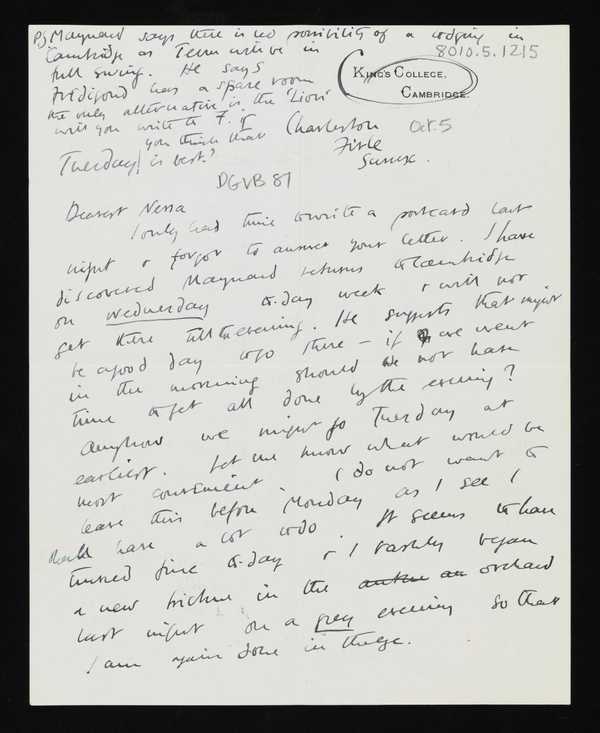 PS Maynard says there is no possibility of a lodging in
Cambridge as Term will be in
full swing. He says
has a spare room
the only alternative is the 'Lion'
will you write to F. if
you think that
Tuesday is best?
8010.5.1215
KING'S COLLEGE,
CAMBRIDGE.
Charleston Oct. 5
Firle
Sussex.
DGVB 81
Dearest Nessa
I only had time to write a postcard last
night & forgot to answer your letter. I have
discovered Maynard returns to Cambridge
on Wednesday to-day week & will not
get there till the evening. He suggests that might
be a good day to go there – if we went
in the morning should we not have
time to get all done by the evening?
Anyhow we might go Tuesday at
earliest. Let me know what would be
most convenient. I do not want to
leave this before Monday as I see I
shall have a lot to do. It seems to have
turned fine to-day & I rashly began
a new picture in the orchard
last night on a grey evening so that
I am again done in the eye.